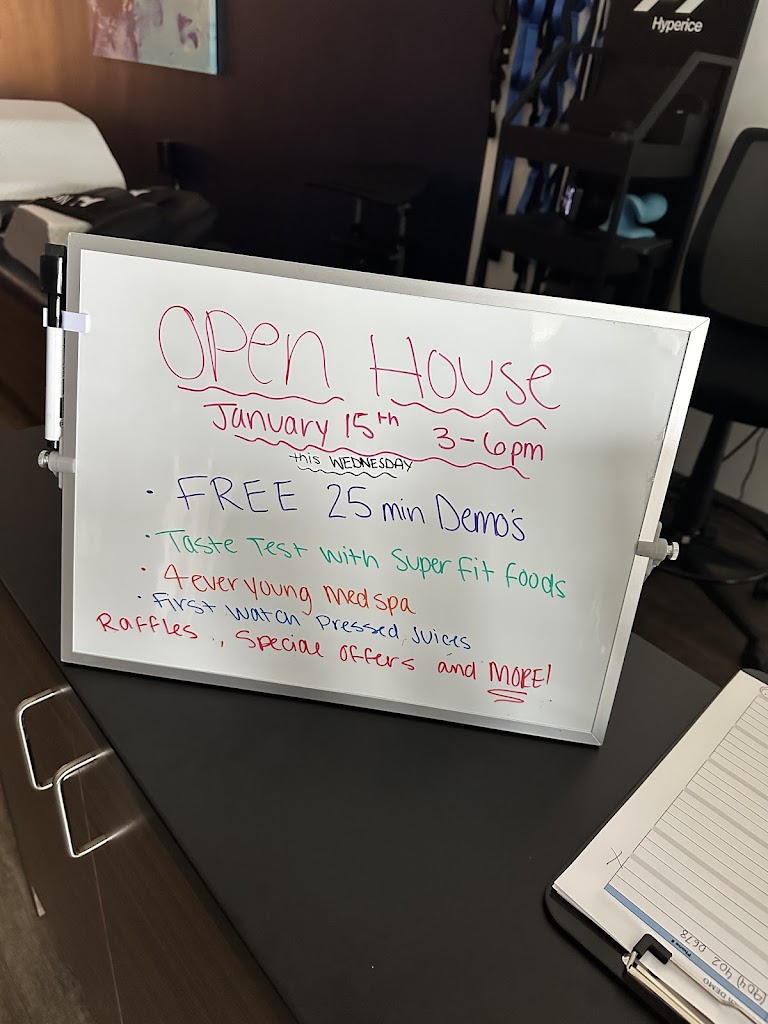 Hyperice
Open House
January 15th 3-6pm
this WEDNESDAY
• FREE 25 min Demo's
• Taste Test with Super Fit Foods
• 4ever young medspa
• First Watch Pressed Juices
Raffles., Special offers and MORE!
(904) 402 0678
DEMO